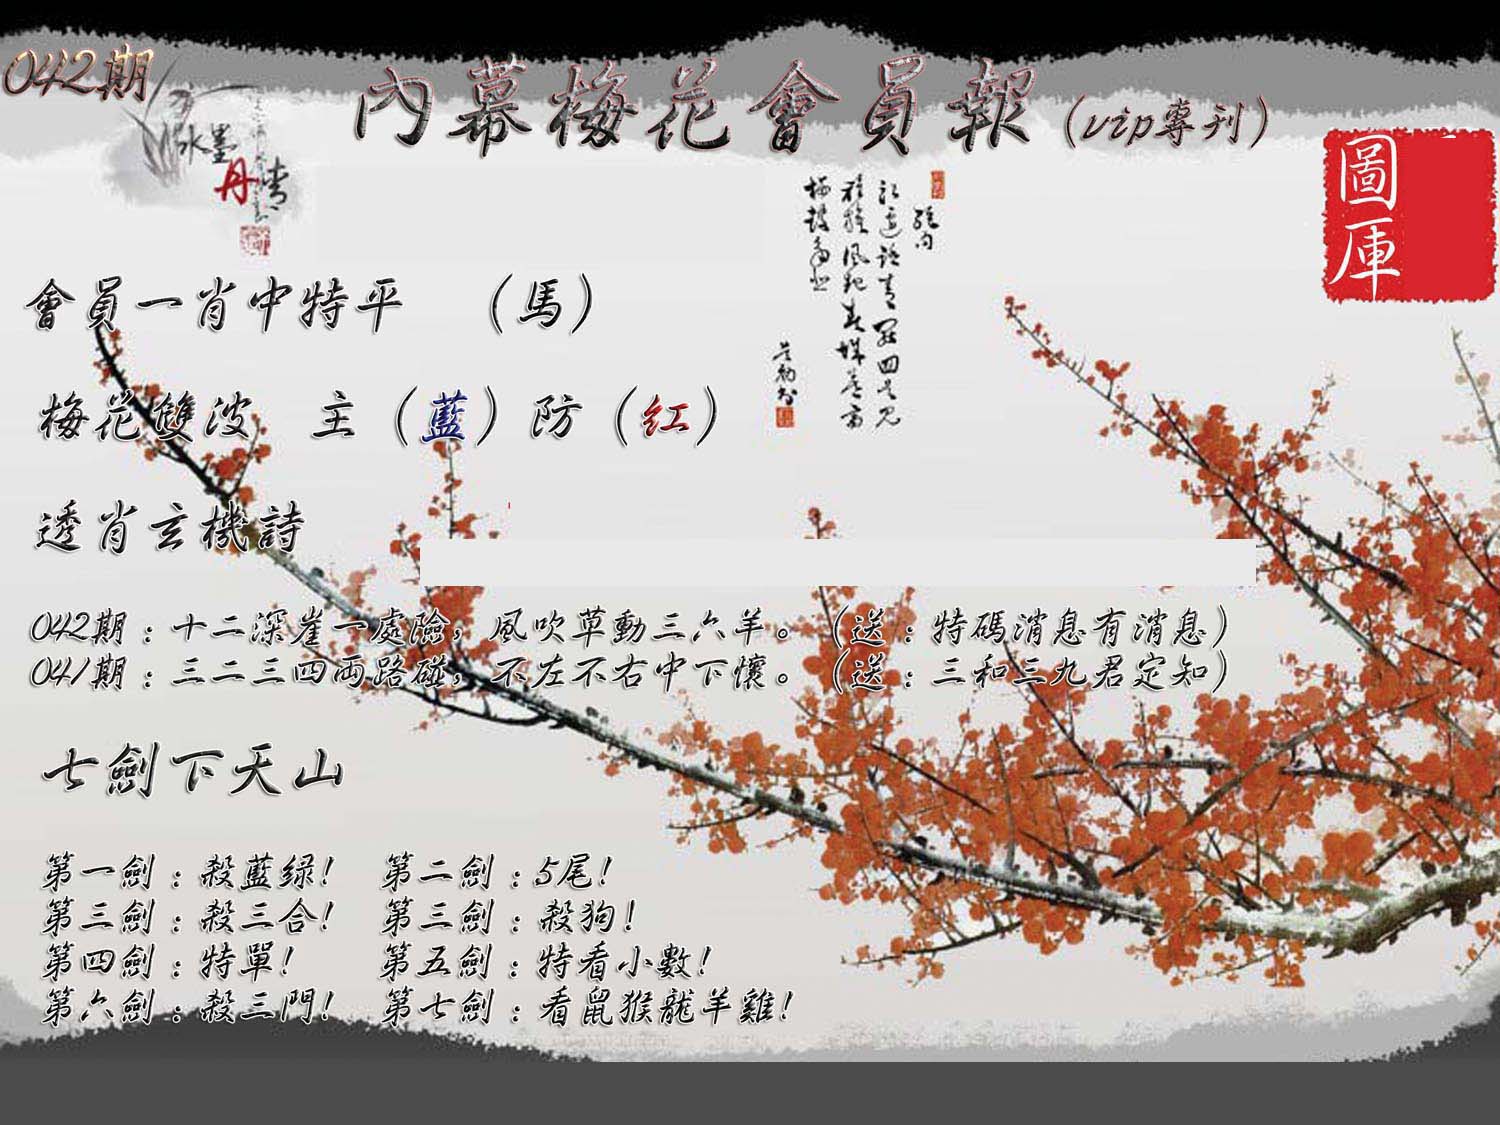 042期
內幕梅花會員報(vip專刊)
水墨
丹青
圖
庫
會員一肖中特平 (馬)
梅花雙波 主(藍)防(紅)
透肖玄機詩
042期:十二深崖一處險,風吹草動三六羊。(送:特碼消息有消息)
041期:三二三四兩路碰,不左不右中下懷。(送:三和三九君定知)
七劍下天山
第一劍:殺藍绿! 第二劍:5尾!
第三劍:殺三合! 第三劍:殺狗!
第四劍:特單! 第五劍:特看小數!
第六劍:殺三門! 第七劍:看鼠猴龍羊雞!